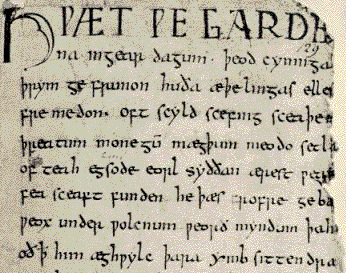 HǷÆT ǷE GARDE
na in gear dagum · þeod cyninga
þrym ge frunon huða æþelingas elle
fre medon. oft scyld scefing sceaþe
þreatum monegū mægþum meodo setla
of teah egsode eorl syððan ærest ƿær
fea sceaft funden he þæs frofre geba
ƿeox under ƿolcnum ƿeorð myndum þah
oð ꝥ him æghƿylc þara ymb sittendra